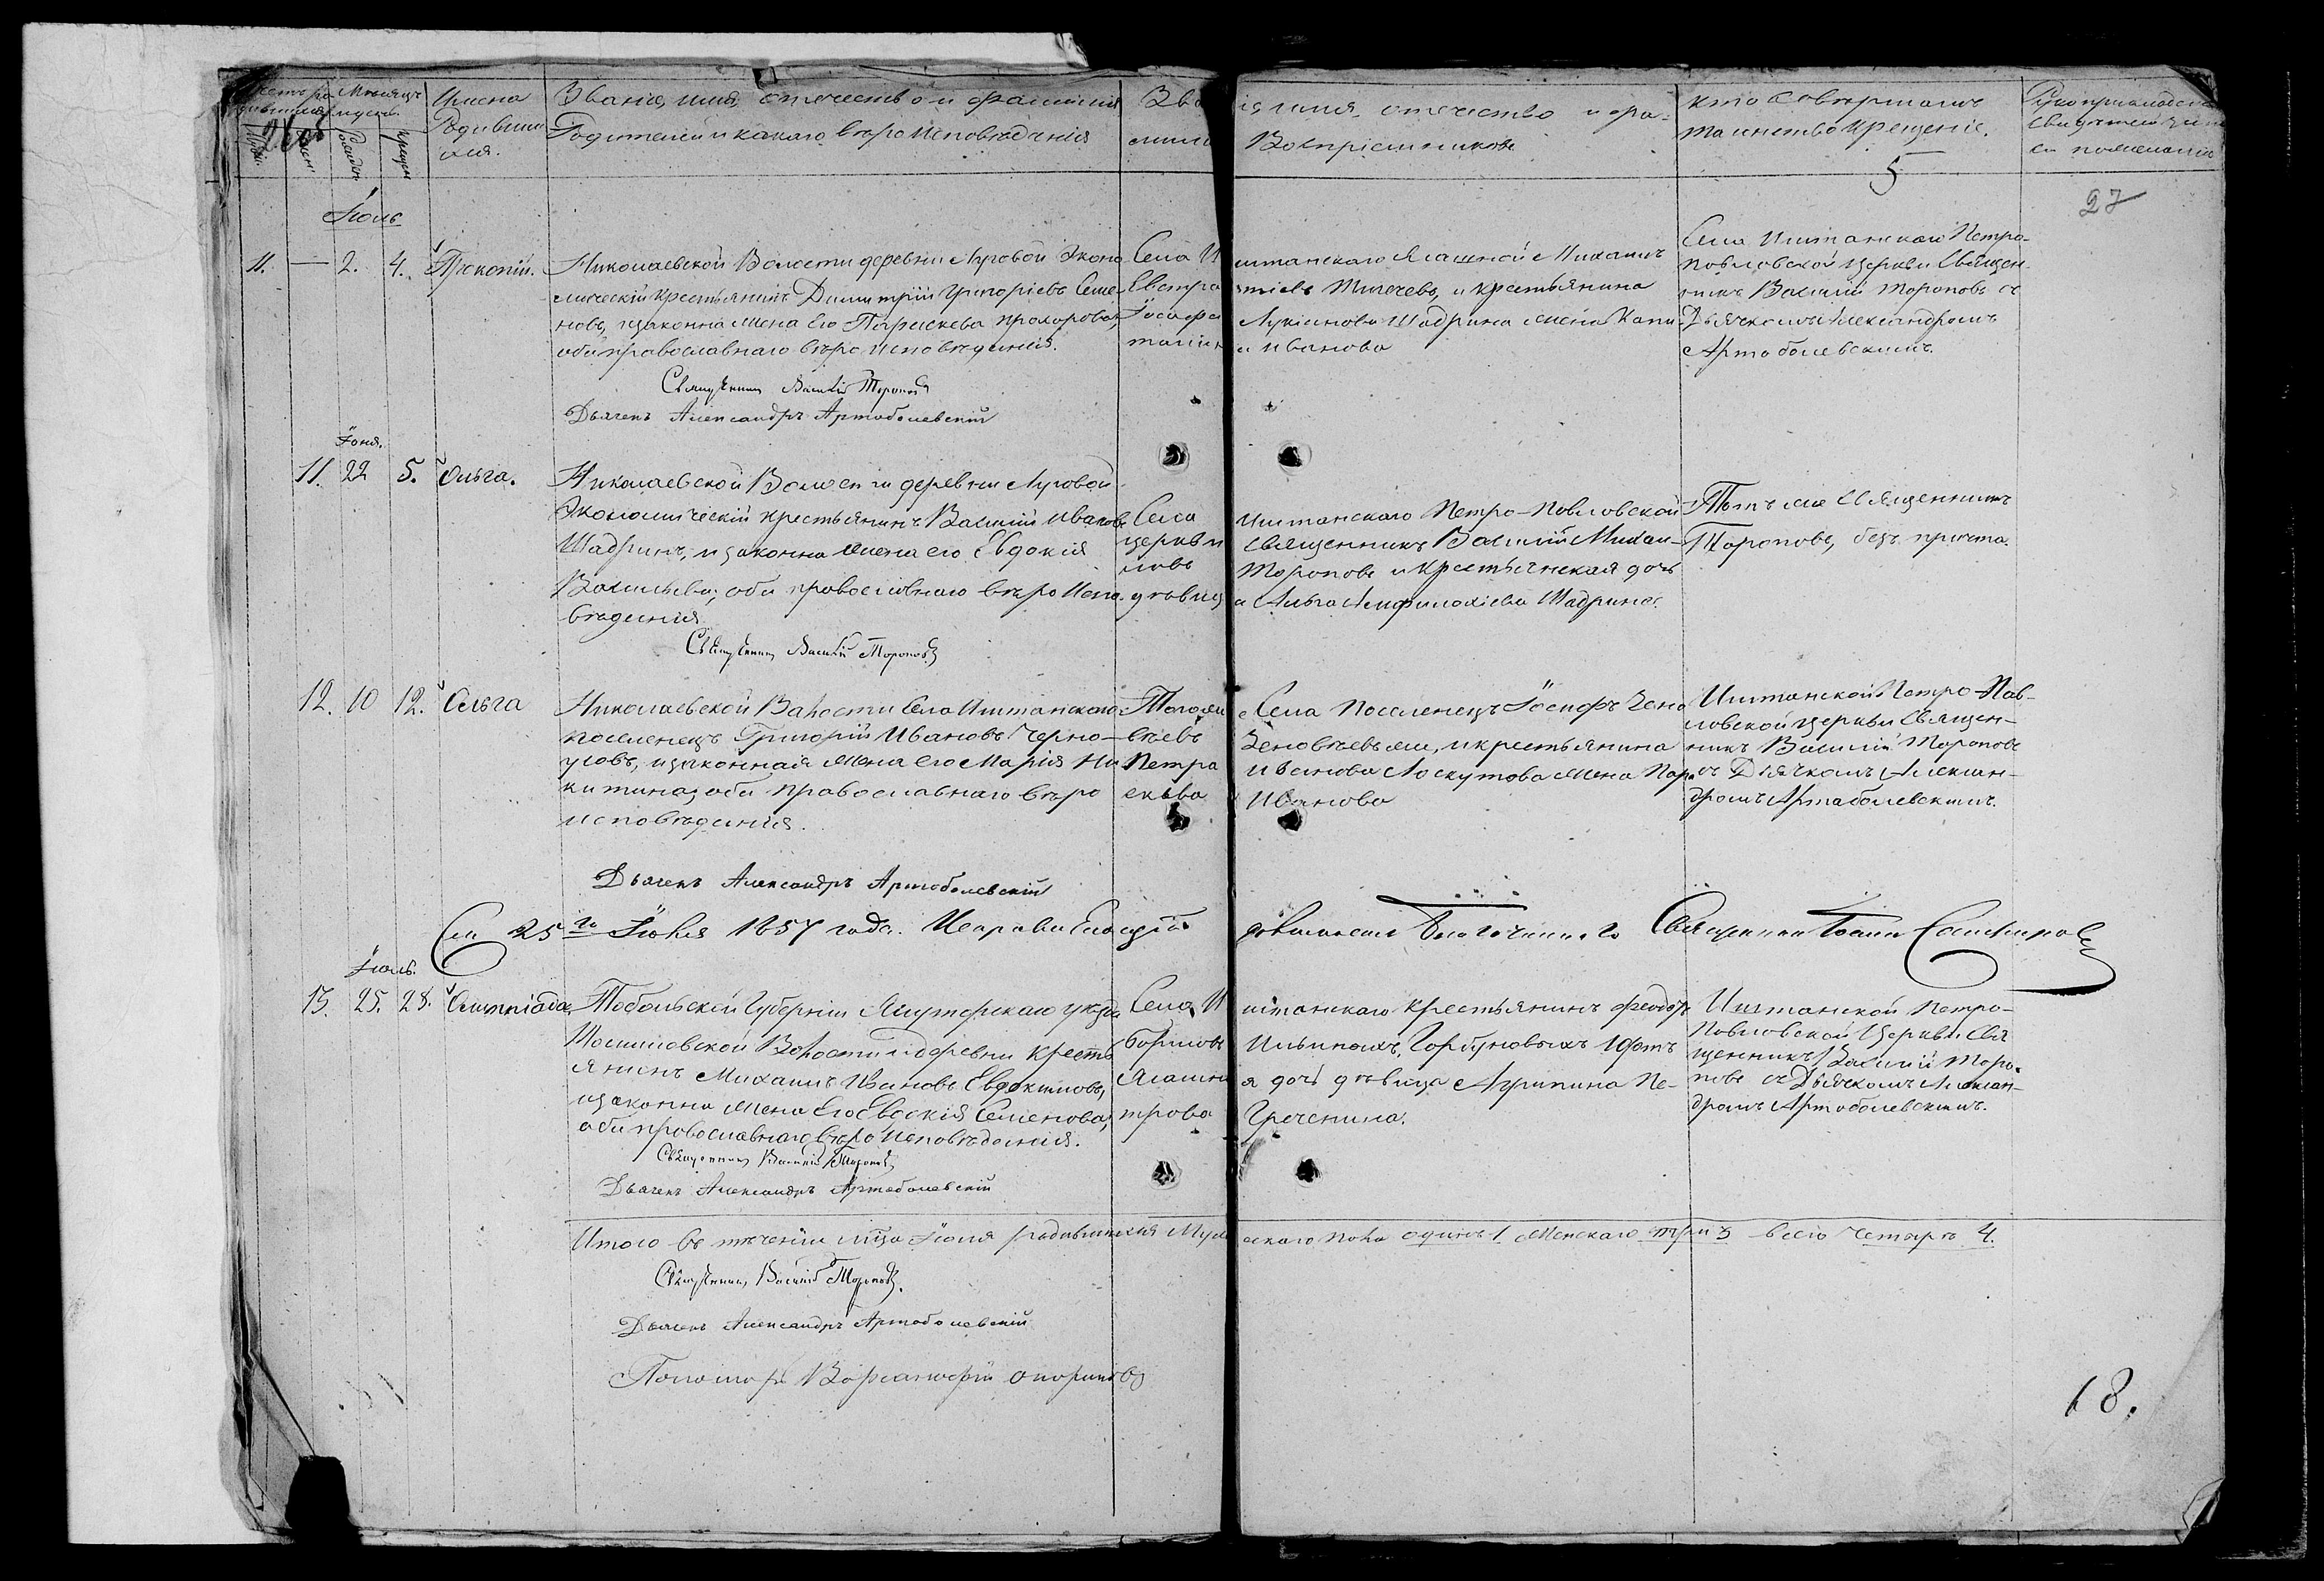 Счетъ ро-
дившихся
Мѣсяцъ
и день.
Имена
Родивши
хся.
Званіе, имя, отечество и фамилія
Родителей и какого вѣроисповѣданія
Зва
мили
іе, имя, отечество и фа-
Воспріемниковъ
Кто совершалъ
таинство крещеніе.
5
Рукоприкладство
свидѣтелей
по желанію
27
Іюль
11. — 2. 4. Прокопій.
Николаевской Волости деревни Луговой Эконо
мическій крестьянинъ Димитрій Григорьевъ Семе-
новъ, и законна жена его Параскева Прохорова,
оби православнаго вѣроисповѣданія.
Села И
Евстра
Іосафа
штанскаго Ясашной Михаилъ
тіевъ Тигечевъ, и крестьянина
Лукіанова Шадрина жена Капи-
толин
а Иванова
Села Иштанскаго Петро-
повловской церкви Священ-
никъ Василій Тороповъ съ
Дьячкомъ Александромъ
Артоболевскимъ.
Священникъ Василій Тороповъ
Дьячекъ Александръ Артоболевскій
Іюня.
11. 22 5. Ольга.
Николаевской Волости деревни Луговой
Экономическій крестьянинъ Василій Ивановъ
Шадринъ, и законна жена его Евдокія
Васильева; оби православнаго вѣроиспо-
вѣданія
Села
церкви
ловъ
дѣвиц
Иштанскаго Петро-Повловской
священникъ Василій Михаи-
Тороповъ и крестьянская дочь
а Ольга Амфилохіева Шадрина.
Тотъ же Священникъ
Тороповъ, безъ причта.
Священникъ Василій Тороповъ
12. 10 12. Ольга
Николаевской Волости Села Иштанскаго
поселенецъ Григорій Ивановъ Черно-
усовъ, и законная жена его Марія Ни
китина; оби православнаго вѣро
исповѣданія.
Тогоже
вѣевъ
Петра
екьва
Села Поселенецъ Іосифъ Зено
Зеновьевымъ, и крестьянина
Иванова Лоскутова жена Пар
Иванова
Иштанской Петро-Пав-
ловской церкви Священ-
никъ Василій Тороповъ
съ Дьячкомъ Алексан-
дромъ Артоболевскимъ.
Дьячекъ Александръ Артоболевскій
25го Іюля 1857 года. Исправляющій
должность Благочиннаго Священникъ Іоаннъ
Іюль.
13. 25. 28. Олимпіада.
Тобольской Губерніи Ялуторскаго уѣзда
Волости деревни Кресть
янинъ Михаилъ Ивановъ Евдокимовъ,
и законна жена Его Евдокія Семенова,
оби православнаго вѣроисповѣданія.
Села И
борисовъ
Ясашна
трова
штанскаго Крестьянинъ Феодоръ
Ильиныхъ, Горбуновыхъ
я дочь дѣвица Агрипина Пе-
Греченина.
Иштанской Петро-
Повловской Церкви Свя
щенникъ Василій Торо-
повъ съ Дьячкомъ Алексан-
дромъ Артоболевскимъ.
Священникъ Василій Тороповъ
Дьячекъ Александръ Артоболевскій
Итого въ теченіи мѣсца Іюля родившихся Муж
ескаго пола одинъ 1 Женскаго три 3 всего четыре 4.
Священникъ Василій Тороповъ.
Дьячекъ Александръ Артоболевскій
Пономарь
18.